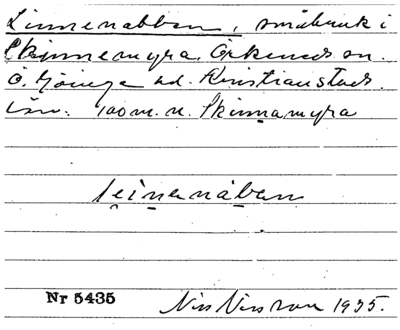 Linnenabben, småbruk i
Skinnemyra, Örkeneds sn.
Ö. Göinge hd. Kristianstads
län. 700 m. n. Skinnamyra
leinenaban
Nr 5435
Nils Nilsson 1935.